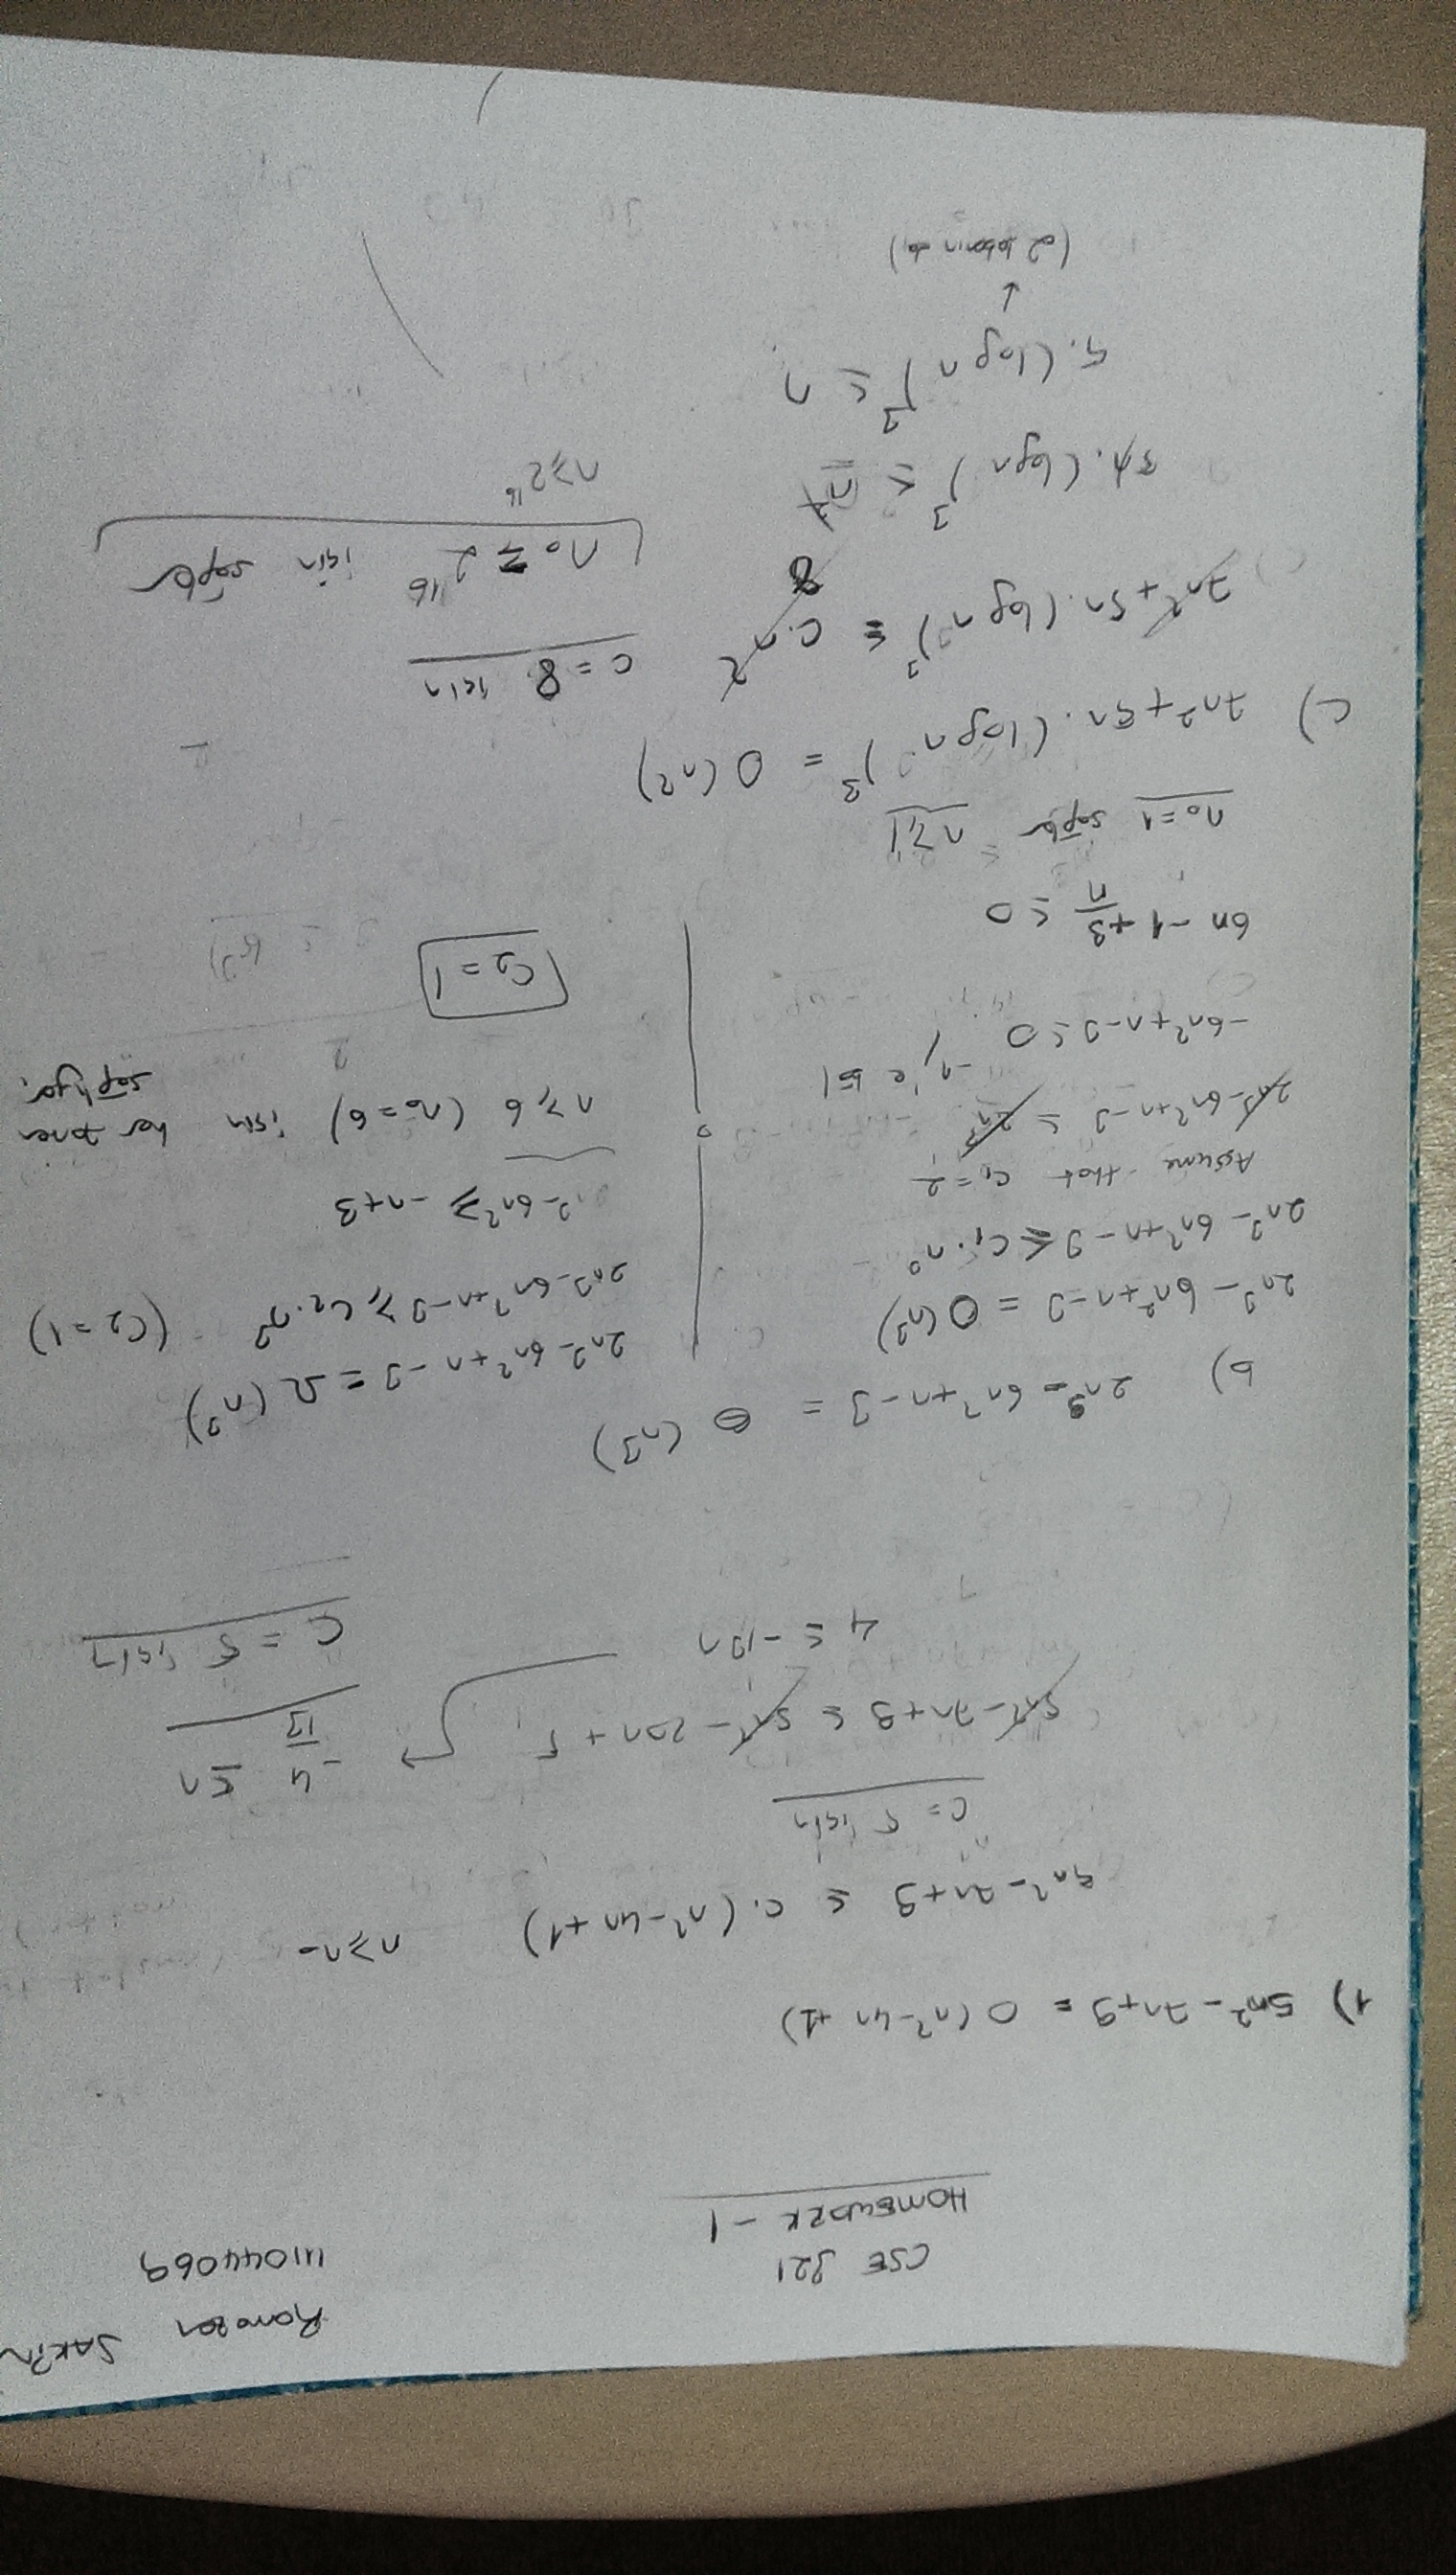 Ramazan SAKİN
111044069
CSE 321
HOMEWORK - 1
1) 5n² - 7n + 9 = O(n² - 4n + 1)
5n² - 7n + 9 ≤ c.(n² - 4n + 1) n ≥ n₀
c = 5 için
5n² - 7n + 9 ≤ 5n² - 20n + 5
4 ≤ -13n
-4/13 ≤ n
c = 5 için
b) 2n³ - 6n² + n - 3 = Θ(n³)
2n³ - 6n² + n - 3 = O(n³)
2n³ - 6n² + n - 3 ≤ c₁.n³
Assume that c₁ = 2
2n³ - 6n² + n - 3 ≤ 2n³
-6n² + n - 3 ≤ 0 -n'e böl
6n - 1 + 3/n ≤ 0
n₀ = 1 sağlar n ≥ 1
2n³ - 6n² + n - 3 = Ω(n³)
2n³ - 6n² + n - 3 ≥ c₂.n³ (c₂ = 1)
n³ - 6n² ≥ -n + 3
n ≥ 6 (n₀ = 6) için her zaman
sağlıyor.
c₂ = 1
c) 7n² + 5n.(log n)³ = O(n²)
7n² + 5n.(log n)³ ≤ c.n²
8
5n.(log n)³ ≤ n²
5.(log n)³ ≤ n
↓
(2 tabanında)
c = 8 için
n₀ = 2¹⁶ için sağlar
n ≥ 2¹⁶